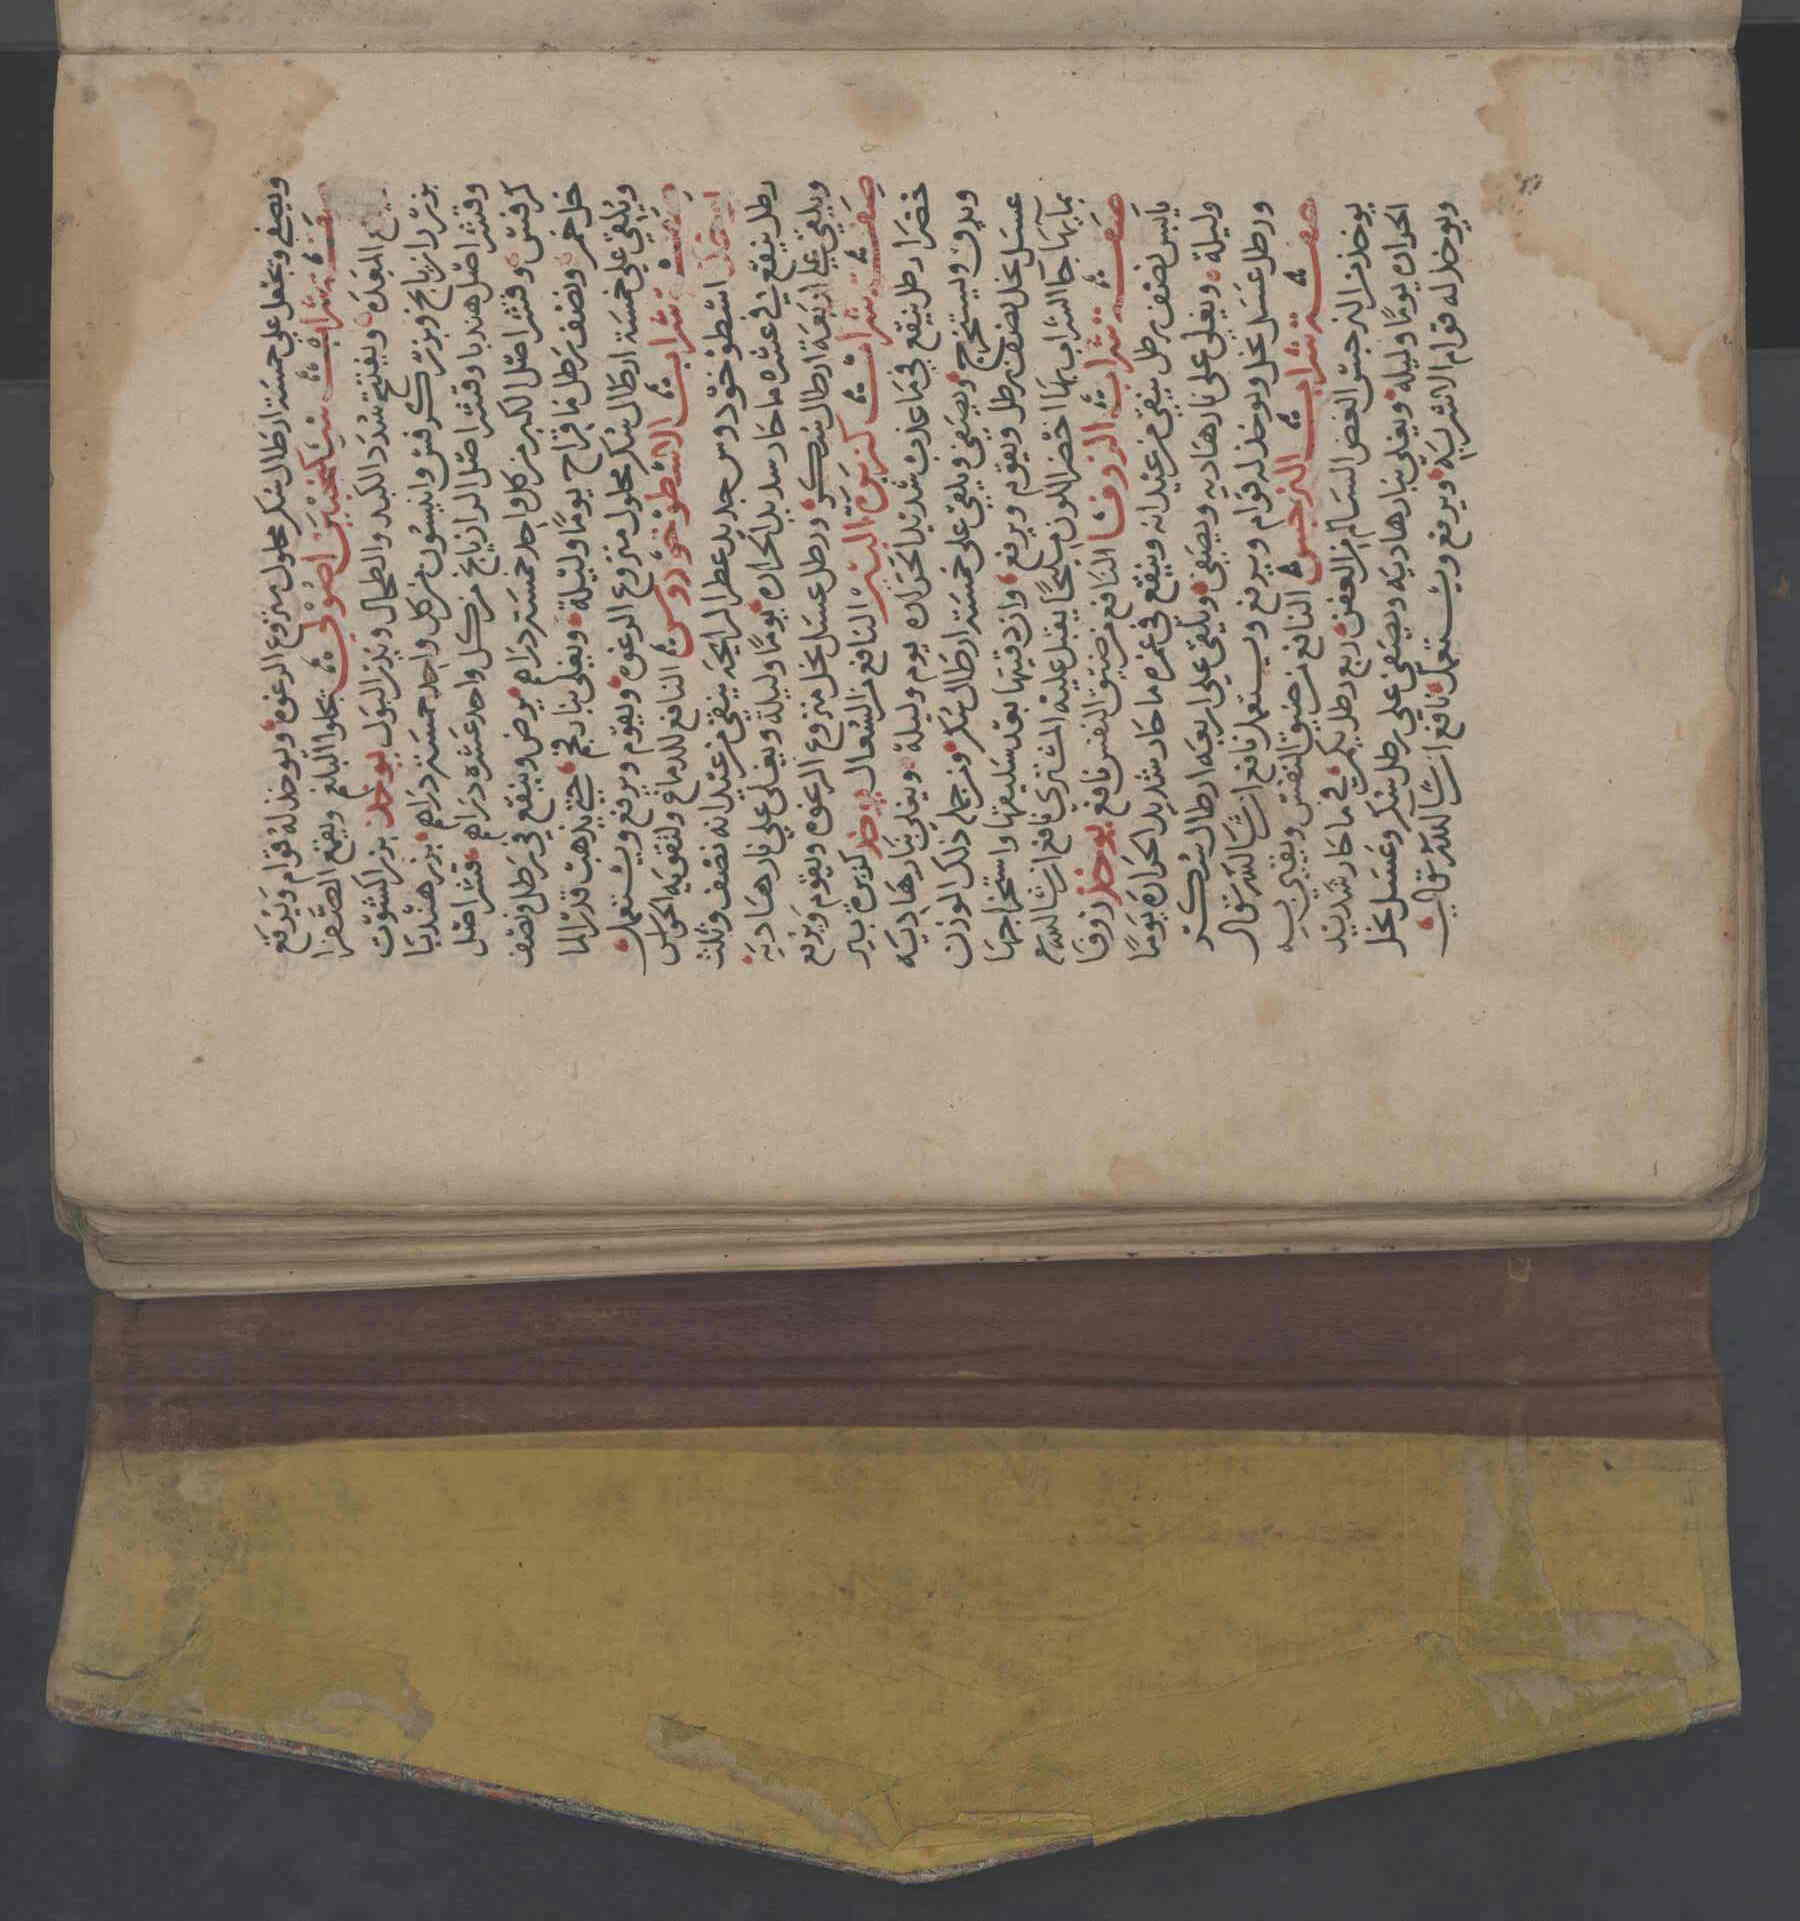 ويصفى ويجعل على خمسة ارطال سكر محلول منزوع الرغوه ويوخذ له قوام ويرفع
صفة شراب سكنجبين اصولي يجلوا البلغم ويقمع الصفرا
المعده ويفتح سدد الكبد والطحال ويدر البول يوخذ بزر الكشوت
بزر رازيانج وبزر كرفس وانيسون من كل واحد خمسة دراهم بزر هندبا
وقشر اصل هندبا وقشر اصل الرازيانج من كل واحد عشره دراهم قشر اصل
كرفس وقشر اصل الكبر من كل واحد خمسة دراهم يرض وينقع في رطل ونصف
خل خمر ونصف رطل ما قراح يومًا وليلة ويغلى بنار فحم حتى يذهب قدر الما
ويلقى على خمسة ارطال سكر محلول منزوع الرغوه ويقوم ويرفع ويستعمل
صفة شراب الاسطوخودوس النافع للدماغ ولتقوية الحواس
اسطوخودوس جديد عطر الرايحه ينقى من عيدانه نصف وثلث
رطل ينقع في عشره ما حار شديد الحراره يومًا وليلة ويغلى على نار هاديه
ويلقى على اربعة ارطال سكر ورطل عسل نحل منزوع الرغوه ويقوم ويرفع
صفة شراب كزبرة البير النافع من السعال يوخذ كزبرة بير
خضرا رطل ينقع في ما عذب شديد الحراره يوم وليلة ويغلى بنار هاديه
ويدق ويستخرج ويصفى ويلقى على خمسة ارطال سكر ومن جملة ذلك الوزن
عسل نحل نصف رطل ويقوم ويرفع وان دقيتها بعد سليقها واستخراجها
بمايها جا الشراب بها اخضر اللون مليحًا يقبل عليه المشتري نافع ان شا الله تع
صفة شراب الزوفا النافع من ضيق النفس نافع يوخذ زوفا
يابس نصف رطل ينقى من عيدانه وينقع في غمره ما حار شديد الحراره يومًا
وليلة ويغلى على نار هاديه ويصفى ويلقى على اربعه ارطال سكر
ورطل عسل نحل ويوخذ له قوام ويرفع ويستعمل نافع ان شا الله تعالى
صفة شراب النرجس النافع من ضيق النفس ويقيي به
يوخذ من النرجس الغض السالم من العفن ربع رطل يرمى في ما حار شديد
الحراره يومًا وليلة ويغلى بنار هاديه ويصفى على رطل سكر وعسل نحل
ويوخذ له قوام الاشربه ويرفع ويستعمل نافع ان شا الله تعالى